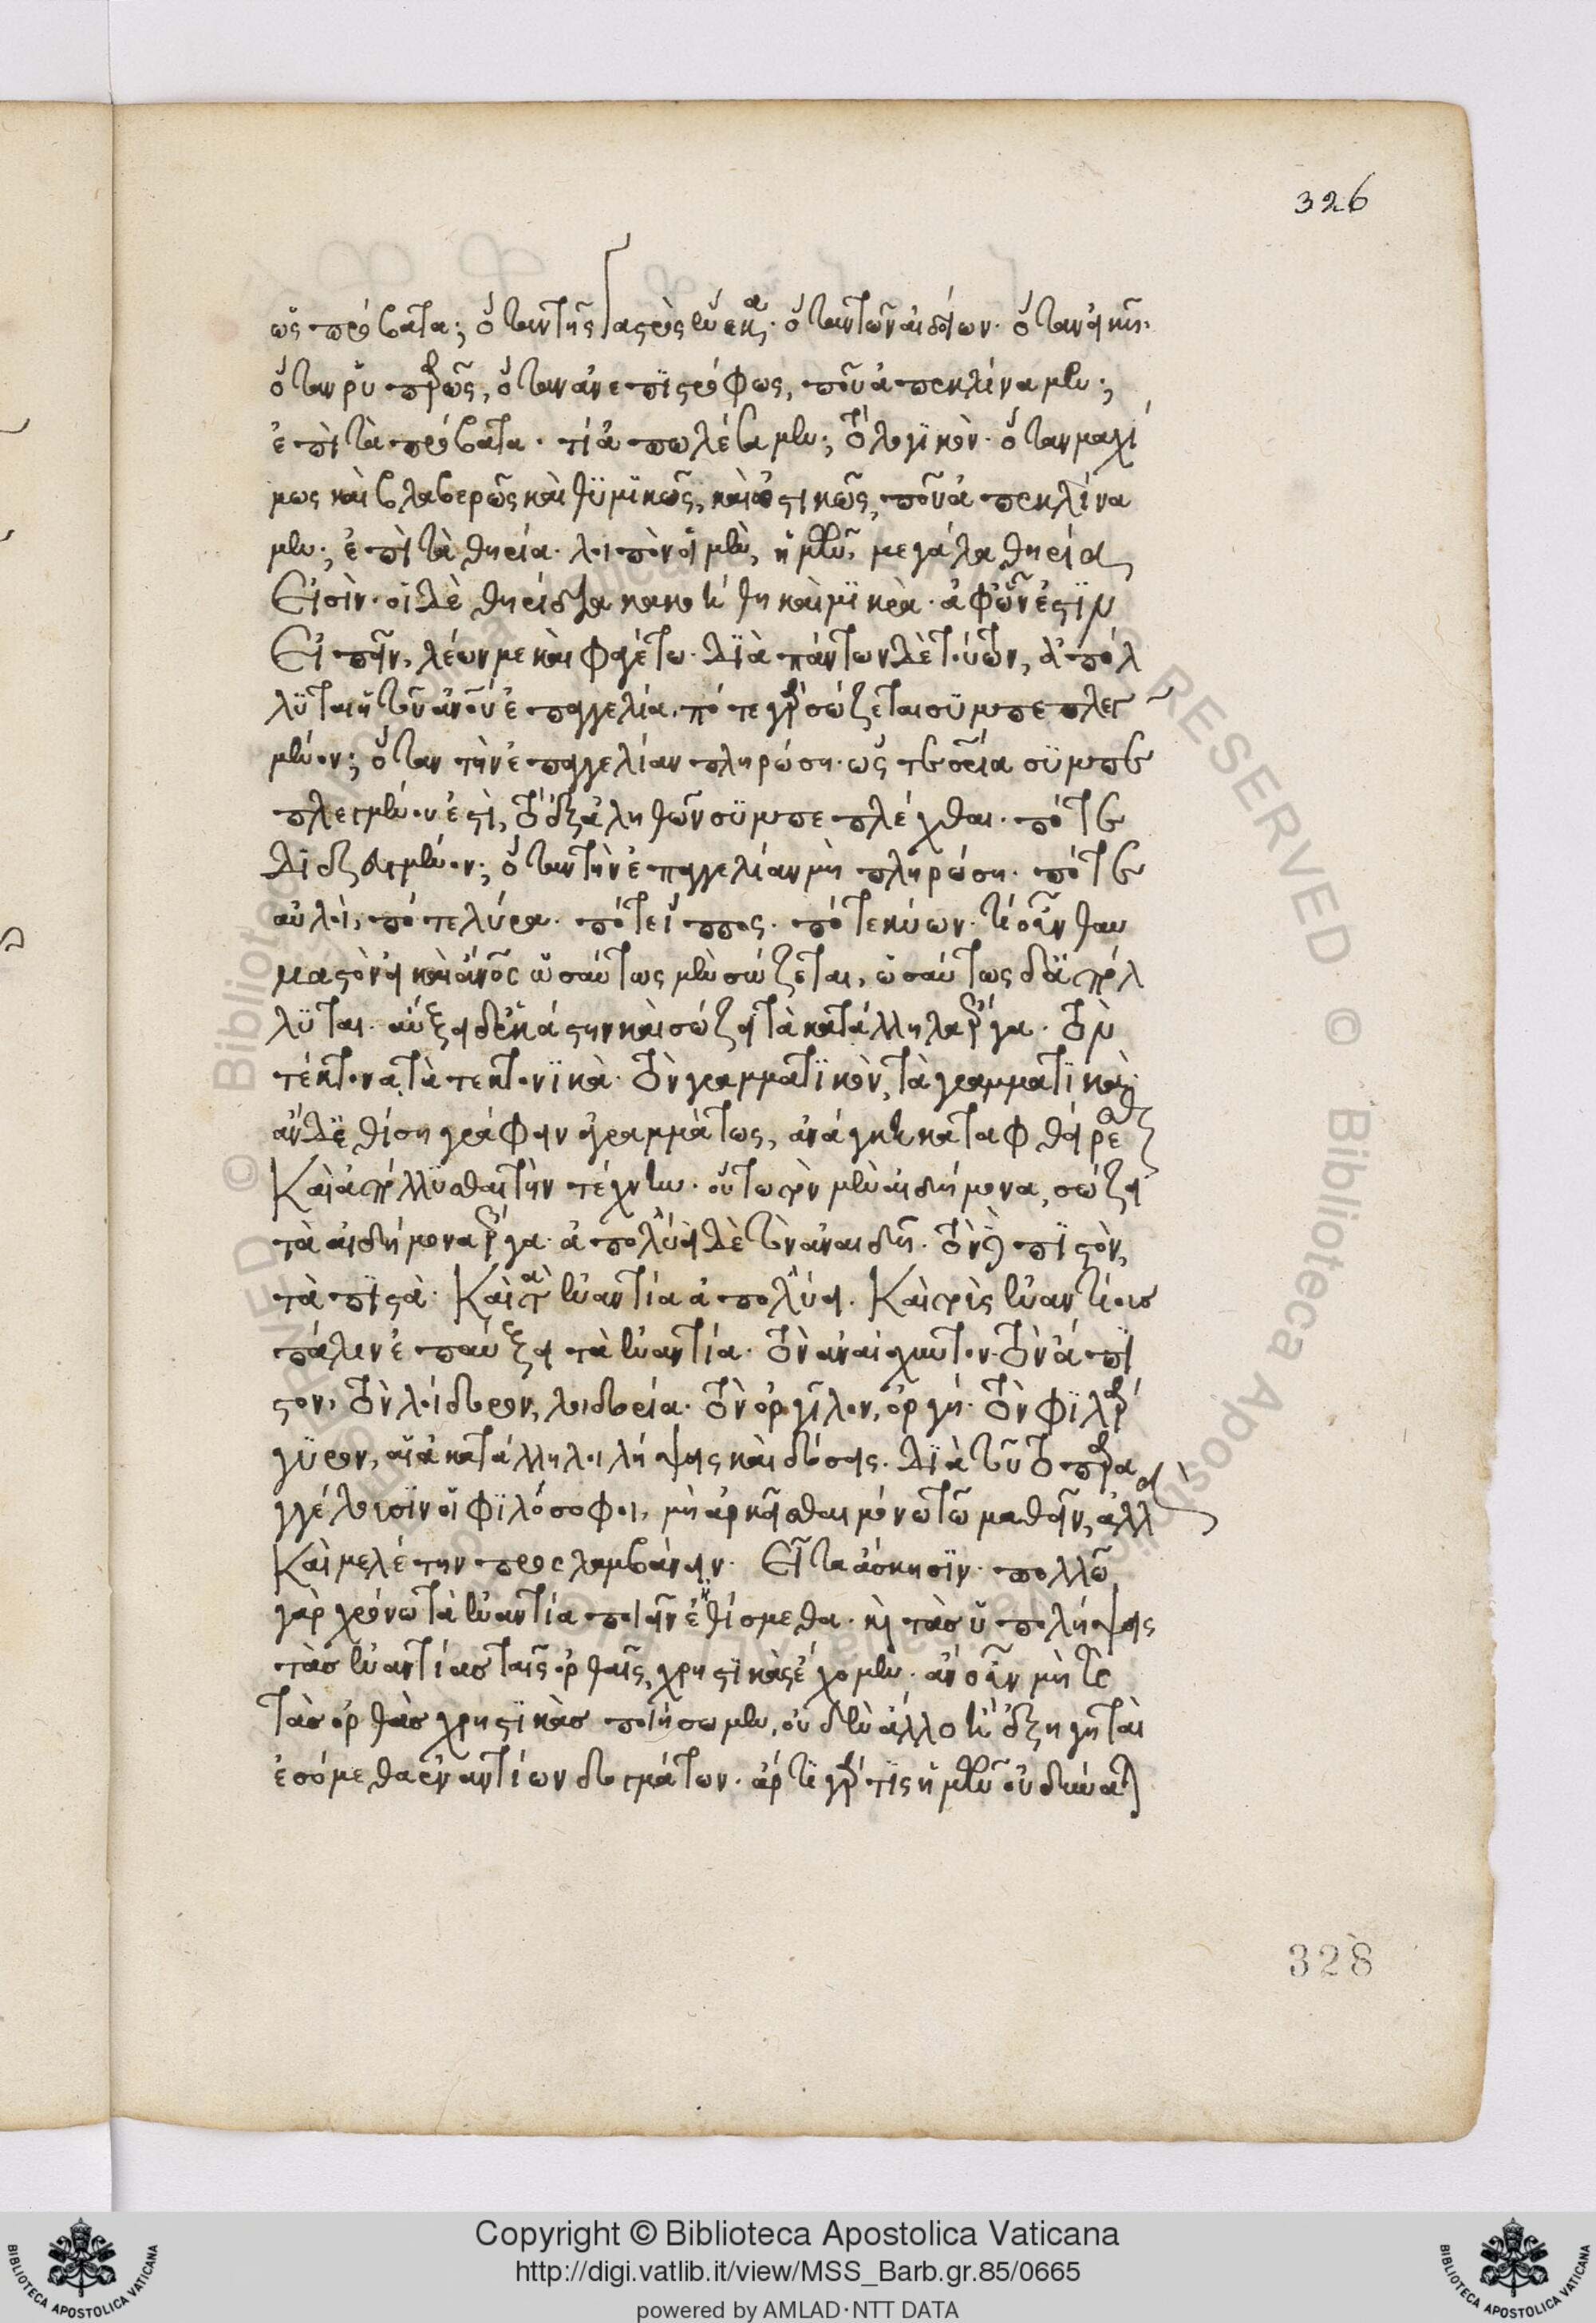 ὡς πρόβατα; ὅταν τῆς γαστρὸς ἕνεκα. ὅταν τῶν αἰδοίων. ὅταν εἰκῆ.
ὅταν ρυπαρῶς, ὅταν ἀνεπιστρόφως, ποῦ ἀπεκλίναμεν;
ἐπὶ τὰ πρόβατα. τί ἀπωλέσαμεν; τὸ λογικὸν. ὅταν μαχί
μως καὶ βλαβερῶς καὶ θυμικῶς, καὶ ὠστικῶς, ποῦ ἀπεκλίνα
μεν; ἐπὶ τὰ θηρία. λοιπὸν οἱ μὲν, ἡμῶν, μεγάλα θηρία
εἰσὶν. οἱ δὲ θηρίδια κακοήθη καὶ μικρὰ. ἀφ' ὧν ἔστιν
εἰπεῖν, λέων με καὶ φαγέτω. διὰ πάντων δὲ τούτων, ἀπόλ
λυται ἡ τοῦ ἀνοῦ ἐπαγγελία. πότε γὰρ σώζεται συμπεπλεγ
μένον; ὅταν τὴν ἐπαγγελίαν πληρώση. ὥστε σρία συμπε
πλεγμένου ἐστὶ, τὸ ἐξ ἀληθῶν συμπεπλέχθαι. πότε
διεζευγμένον; ὅταν τὴν ἐπαγγελίαν μὴ πληρώση. πότε
αὐλοὶ, πότε λύρα. πότε ἵππος. πότε κύων. τί οὖν θαυ
μαστὸν εἰ καὶ ἄνος ὡσαύτως μὲν σώζεται, ὡσαύτως δ' ἀπόλ
λυται. αὔξει δ' ἕκάστην καὶ σώζει τὰ κατάλληλα ἔργα. τὸν
τέκτονα τὰ τεκτονικὰ. τὸν γραμματικὸν, τὰ γραμματικὰ.
ἂν δὲ ἐθίση γράφειν ἀγραμμάτως, ἀνάγκη καταφθείρεσθαι
καὶ ἀπόλλυσθαι τὴν τέχνην. οὕτω τὸν μὲν αἰδήμονα, σώζει
τὰ αἰδήμονα ἔργα. ἀπολύει δὲ τὸν ἀναιδῆ. τὸν δὲ πιστὸν,
τὰ πιστὰ. καὶ τὰ ἐναντία ἀπολύει. καὶ τοὺς ἐναντίους
πάλιν ἐπαύξει τὰ ἐναντία. τὸν ἀναίσχυντον. τὸν ἄπι
στον, τὸν λοίδορον, λοιδορία. τὸν ὀργίλον, ὀργή. τὸν φιλάρ
γυρον, αἱ ἀκατάλληλοι λήψεις καὶ δόσεις. διὰ τοῦτο παρα
γγέλουσιν οἱ φιλόσοφοι, μὴ ἀρκεῖσθαι μόνω τῶ μαθεῖν, ἀλλὰ
καὶ μελέτην προσλαμβάνειν. εἶτα ἄσκησιν. πολλῶ
γὰρ χρόνω τὰ ἐναντία ποιεῖν ἐθίσμεθα. καὶ τὰς ὑπολήψεις
τὰς ἐναντίας ταῖς ὀρθαῖς, χρηστικὰς ἔχομεν. ἂν οὖν μὴ καὶ
τὰς ὀρθὰς χρηστικὰς ποιήσωμεν, οὐδὲν ἄλλο ἢ ἐξηγηταὶ
ἐσόμεθα ἐναντίων δογμάτων. ἄρτι γάρ τις ἡμῶν οὐ δύναται
326
328
Copyright © Biblioteca Apostolica Vaticana
http://digi.vatlib.it/view/MSS_Barb.gr.85/0665
powered by AMLAD·NTT DATA